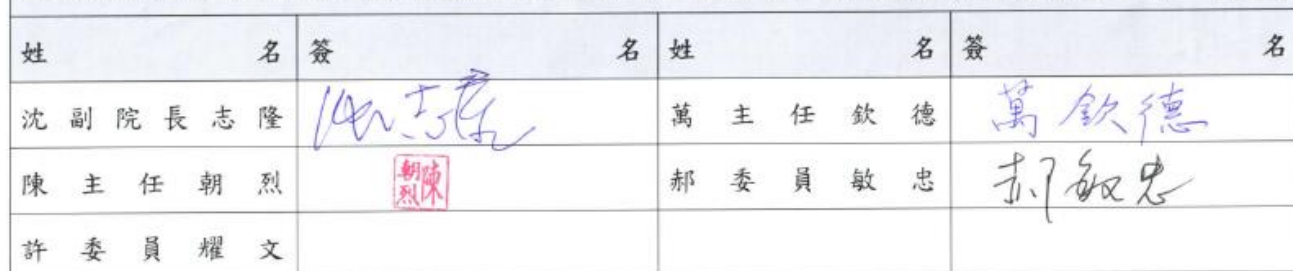 姓名 簽名 姓名 簽名
沈副院長志隆 沈志隆 萬主任欽德 萬欽德
陳主任朝烈 陳朝烈 郝委員敏忠 郝敏忠
許委員耀文